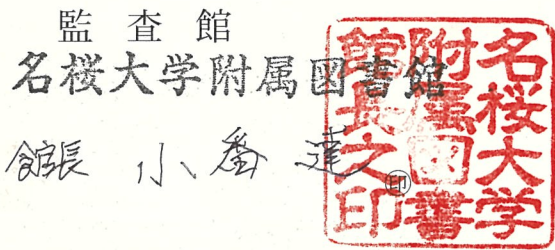 監査館
名桜大学附属図書館
館長 小番 達
㊞
名桜大学
附属図書
館長之印